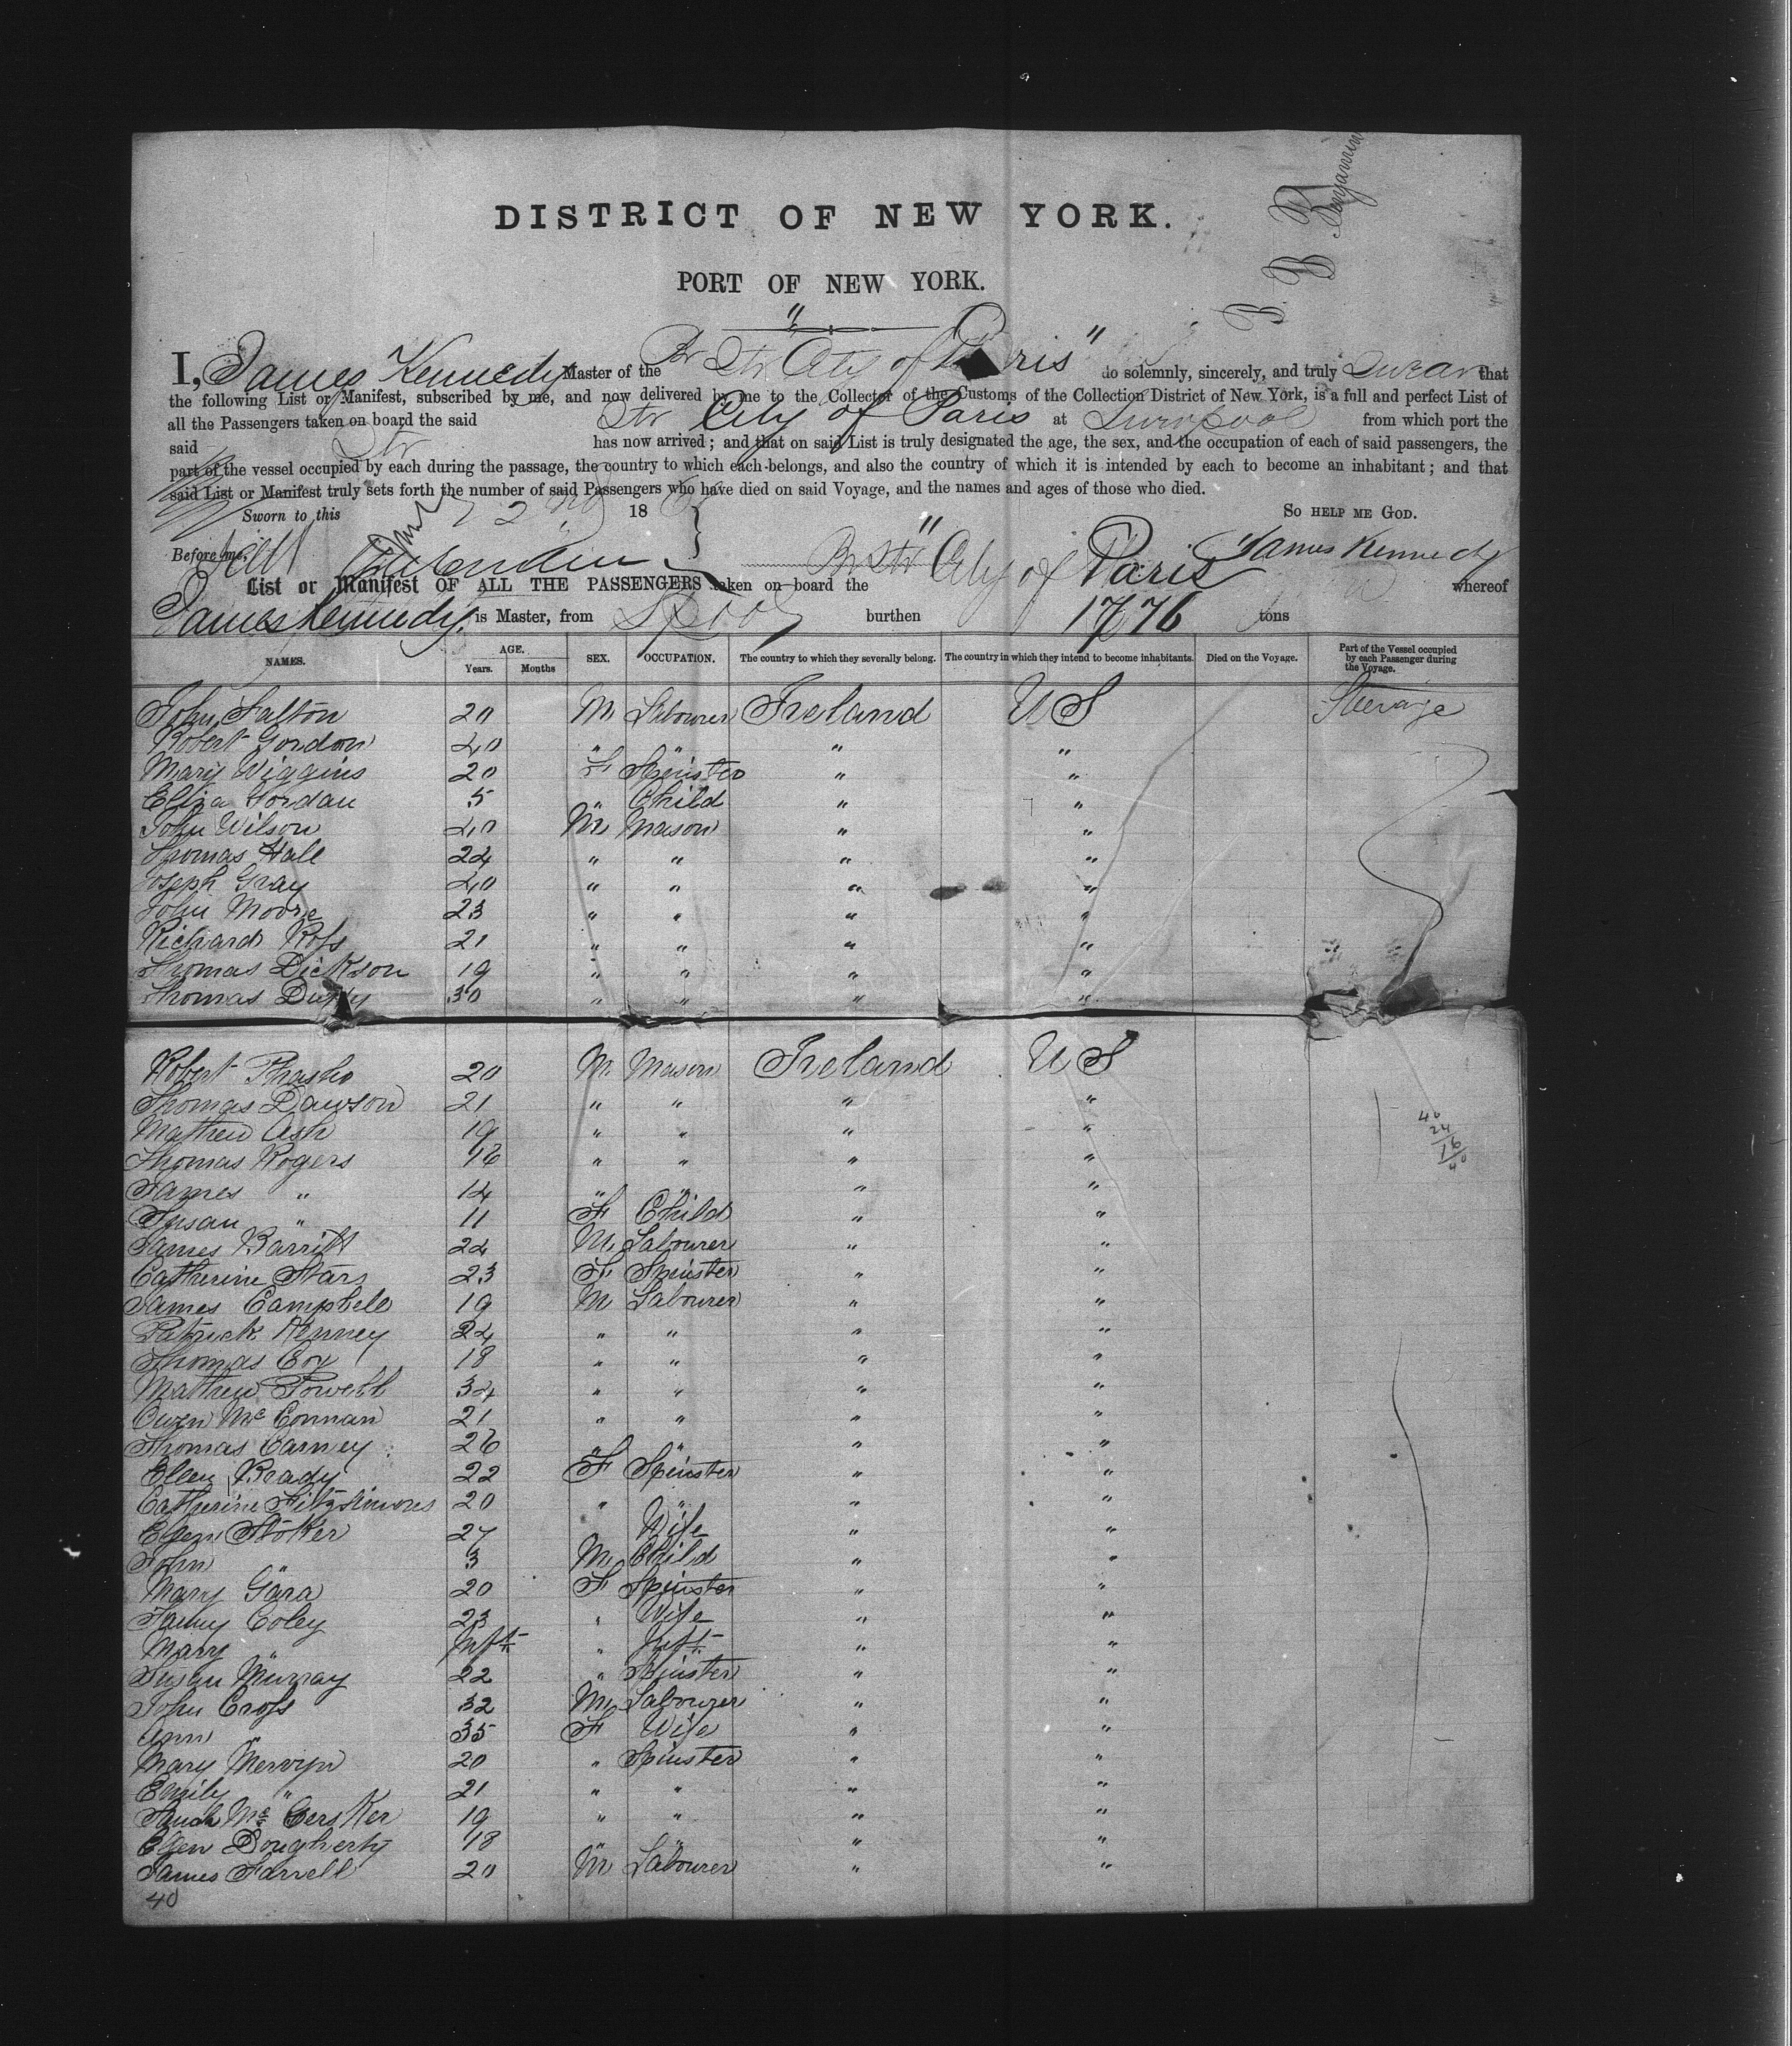 B B Benjamin
DISTRICT OF NEW YORK.
PORT OF NEW YORK.
I, James Kennedy Master of the Br Str "City of Paris" do solemnly, sincerely, and truly swear that
the following List or Manifest, subscribed by me, and now delivered by me to the Collector of the Customs of the Collection District of New York, is a full and perfect List of
all the Passengers taken on board the said Str City of Paris at Liverpool from which port the
said Str has now arrived; and that on said List is truly designated the age, the sex, and the occupation of each of said passengers, the
part of the vessel occupied by each during the passage, the country to which each belongs, and also the country of which it is intended by each to become an inhabitant; and that
said List or Manifest truly sets forth the number of said Passengers who have died on said Voyage, and the names and ages of those who died.
Sworn to this 22nd 18 SO HELP ME GOD.
Before me, James Kennedy
List or Manifest OF ALL THE PASSENGERS taken on board the Br Str "City of Paris whereof
James Kennedy, is Master, from LPool burthen 1776 tons
NAMES. AGE. Years. Months SEX. OCCUPATION. The country to which they severally belong. The country in which they intend to become inhabitants. Died on the Voyage. Part of the Vessel occupied by each Passenger during the Voyage.
John Falton 20 M Labourer Ireland US Steerage
Robert Gordon 40 " " " "
Mary Wiggins 20 F Spinster " "
Eliza Gordan 5 " Child " "
John Wilson 40 M Mason " "
Thomas Hall 24 " " " "
Joseph Gray 40 " " " "
John Moore 23 " " " "
Richard Ross 21 " " " "
Thomas Dickson 19 " " " "
Thomas Duffy 30 " " " "
Robert 20 M Mason Ireland US
Thomas Dawson 21 " " " "
Mathew Ash 19 " " " "
Thomas Rogers 16 " " " "
James " 14 " " " "
Susan " 11 F Child " "
James Barritt 24 M Labourer " "
Catherine Stars 23 F Spinster " "
James Campbell 19 M Labourer " "
Patrick Kenney 24 " " " "
Thomas Coy 18 " " " "
Mathew Powell 34 " " " "
Owen McConnan 21 " " " "
Thomas Carney 26 " " " "
Ellen Brady 22 F Spinster " "
Catherine Fitzsimons 20 " " " "
Ellen Stoker 27 Wife " "
John " 3 M Child " "
Mary Gara 20 F Spinster " "
Fanny Coley 23 " Wife " "
Mary " Inft " Inft " "
Susan Murray 22 " Spinster " "
John Cross 32 M Labourer " "
Ann " 35 F Wife " "
Mary Mervyn 20 " Spinster " "
Emily " 21 " " " "
19 " " " "
Ellen Dougherty 18 " " " "
James Farrell 20 M Labourer " "
40
40
24
16
40